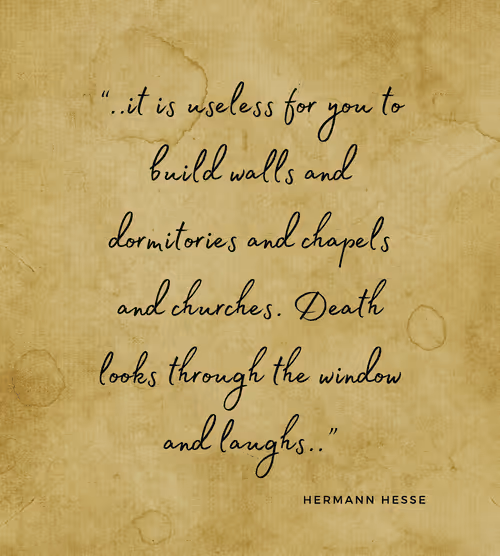 “..it is useless for you to
build walls and
dormitories and chapels
and churches. Death
looks through the window
and laughs..”
HERMANN HESSE